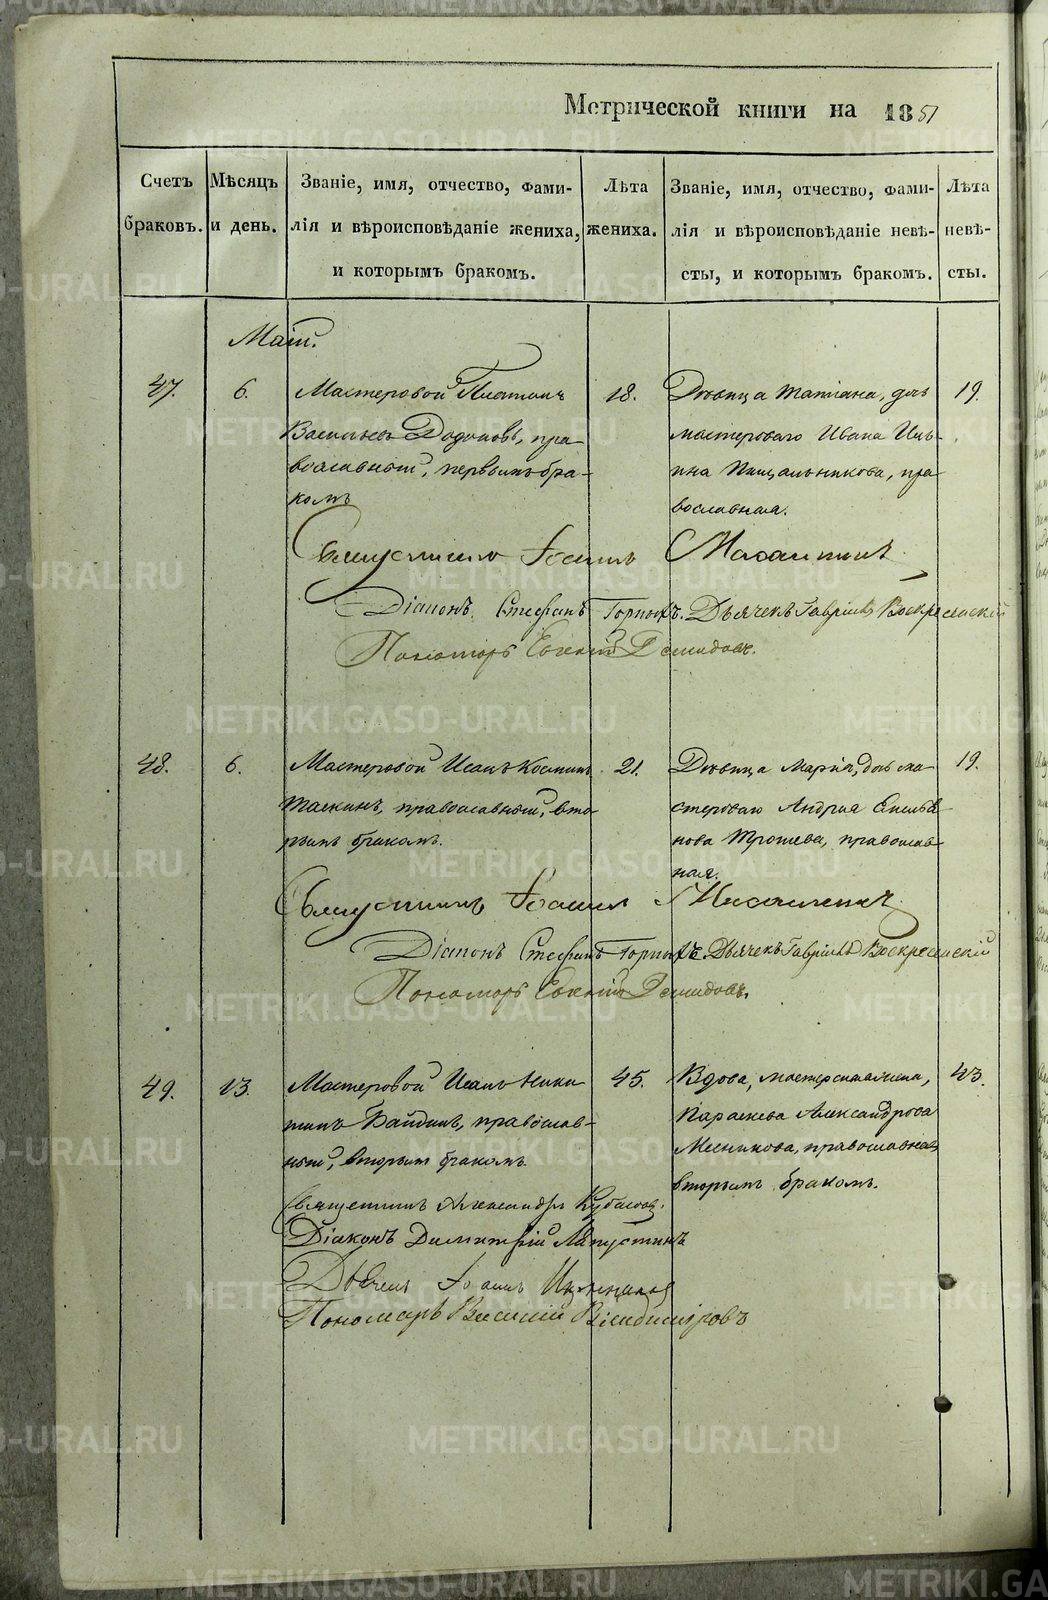 Метрической книги на 1851
Счетъ браковъ.
Мѣсяцъ и день.
Званіе, имя, отчество, фами-
лія и вѣроисповѣданіе жениха,
и которымъ бракомъ.
Лѣта жениха.
Званіе, имя, отчество, фами-
лія и вѣроисповѣданіе невѣ-
сты, и которымъ бракомъ.
Лѣта невѣ-
сты.
Маій.
47.
6.
Мастеровой Платонъ
Васильевъ Додоновъ, пра-
вославный, первымъ бра-
комъ
18.
Дѣвица Татіана, дочь
мастероваго Ивана Иль-
ина Пищальникова, пра-
вославная.
19.
Священникъ Іоаннъ
Діаконъ Стефанъ Горныхъ. Дьячекъ Гавріилъ Воскресенскій
Пономарь Евгеній Демидовъ.
48.
6.
Мастеровой Исакъ Косминъ
Таскинъ, православный, вто-
рымъ бракомъ.
21.
Дѣвица Марія, дочь ма-
стероваго Андрея Емелья
нова Трошева, православ-
ная.
19.
Священникъ Іоаннъ
Діаконъ Стефанъ Горныхъ. Дьячекъ Гавріилъ Воскресенскій
Пономарь Евгеній Демидовъ.
49.
13.
Мастеровой Исакъ Ники
тинъ Байдинъ, православ-
ный, вторымъ бракомъ.
45.
Вдова, мастерская жена,
Параскева Александрова
Мясникова, православная
вторымъ бракомъ.
43.
Священникъ Александръ
Діаконъ Димитрій Лапустинъ
Дьячекъ Іоаннъ
Пономарь Василій Владиміровъ
METRIKI.GASO-URAL.RU